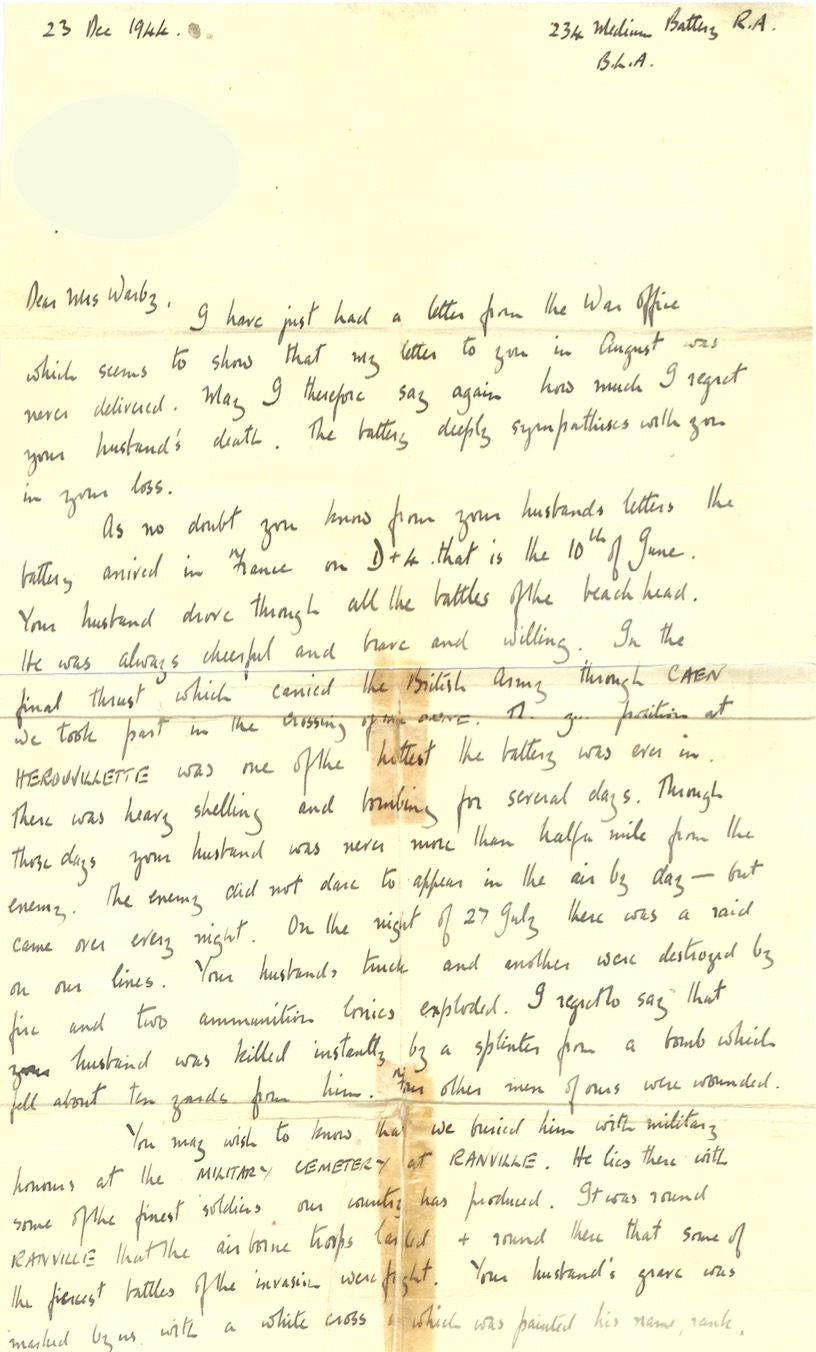 23 Dec 1944.
234 Medium Battery R.A.
B.L.A.
Dear Mrs Warby.
I have just had a letter from the War office
which seems to show that my letter to you in August was
never delivered. May I therefore say again how much I regret
your husband's death. The battery deeply sympathises with you
in your loss.
As no doubt you know from your husbands letters the
battery arrived in France on D+4. that is the 10th of June.
Your husband drove through all the battles of the beach head.
He was always cheerful and brave and willing. In the
final thrust which carried the British Army through CAEN
we took part in the crossing of the position at
HEROUVILLETTE was one of the hottest the battery was ever in.
There was heavy shelling and bombing for several days. Through
those days your husband was never more than half a mile from the
enemy. The enemy did not dare to appear in the air by day — but
came over every night. On the night of 27 July there was a raid
on our lines. Your husbands truck and another were destroyed by
fire and two ammunition lorries exploded. I regret to say that
your husband was killed instantly by a splinter from a bomb which
fell about ten yards from him. other men of ours were wounded.
You may wish to know that we buried him with military
honours at the MILITARY CEMETERY at RANVILLE. He lies there with
some of the finest soldiers our country has produced. It was round
RANVILLE that the airborne troops landed + round there that some of
the fiercest battles of the invasion were fought. Your husband's grave was
marked by us with a white cross which was painted his name, rank,